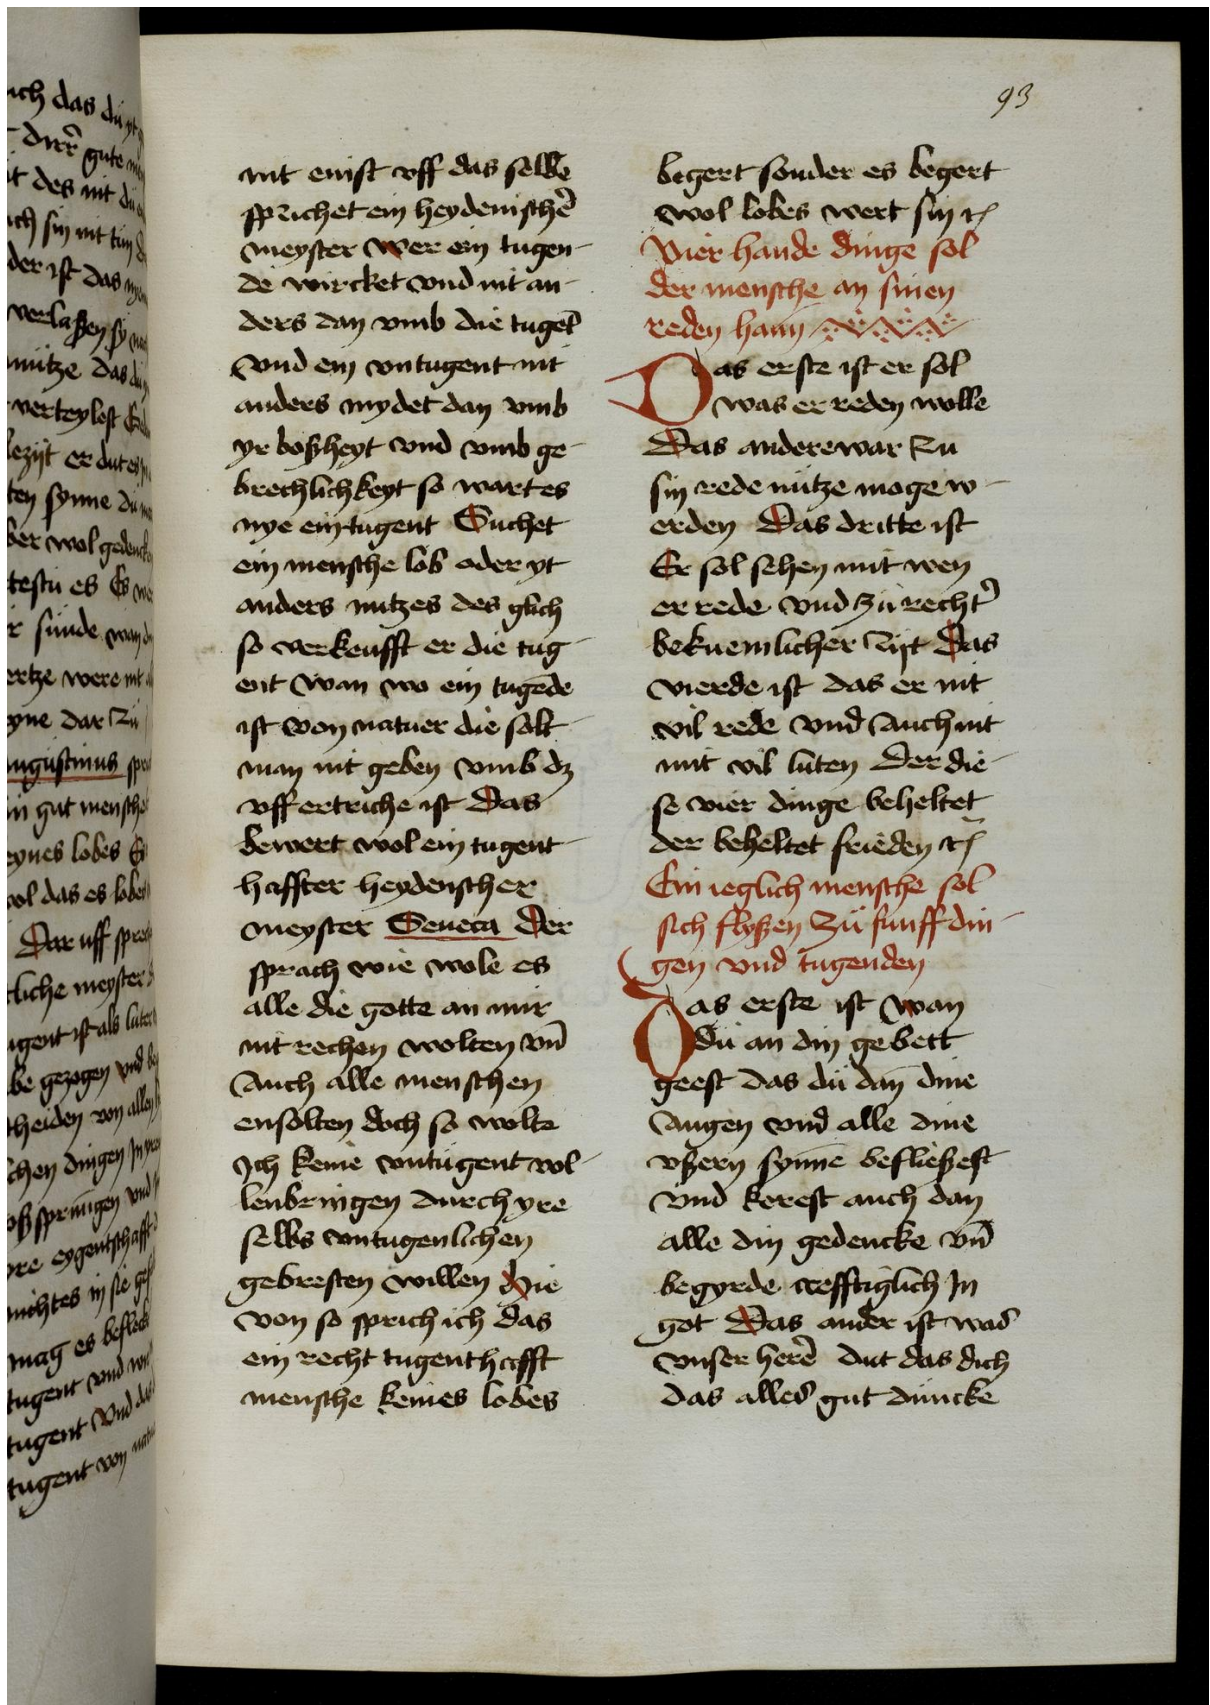 93
nit enist vff das selbe
sprichet ein heydenischẽ
meyster wer ein tugen-
de wircket vnd nit an-
ders dan vmb die tugẽt
vnd ein vntugent nit
anders mydet dan vmb
yr boßheyt vnd vmb ge-
brechlichkeyt so wart es
nye ein tugent Suchet
ein mensche lob oder yt
anders nutzes des glich
so verkeufft er die tug
ent wan wo ein tugẽde
ist von natuer die solt
man nit geben vmb dz
vff ertriche ist Das
bewert wol ein tugent-
haffter heydenscher
meyster Seneca Der
sprach wie wole es
alle die gotte an mir
nit rechen wolten vñ
Auch alle menschen
ensolten doch so wolte
Ich keine vntugent vol-
lenbringen durch yre
selbs vntugenlichen
gebresten willen Hie
von so sprich ich das
ein recht tugenthafft
mensche keines lobes
begert sonder es begert
wol lobes wert sin ꝛc
Vier hande dinge sol
der mensche an sinen
reden hann
Das erste ist er sol
was er reden wolle
Das andere war zu
sin rede nütze moge w-
erden Das dritte ist
Er sol sehen mit wen
er rede vnd zů recht᷑
bekuemlicher zijt Das
vierde ist das er nit
vil rede vnd Auch nit
mit vil luten Der die-
se vier dinge beheltet
der beheltet frieden ꝛc
Ein ieglich mensche sol
sich flyßen zů funff din-
gen vnd tugenden
Das erste ist wan
du an din gebett
geest das dü dañ dine
Augen vnd alle dine
vßern synne befließest
vnd kerest auch dan
alle din gedencke vñ
begyrde crefftiglich In
got Das ander ist was
vnser herẽ dut das dich
das alles gut düncke